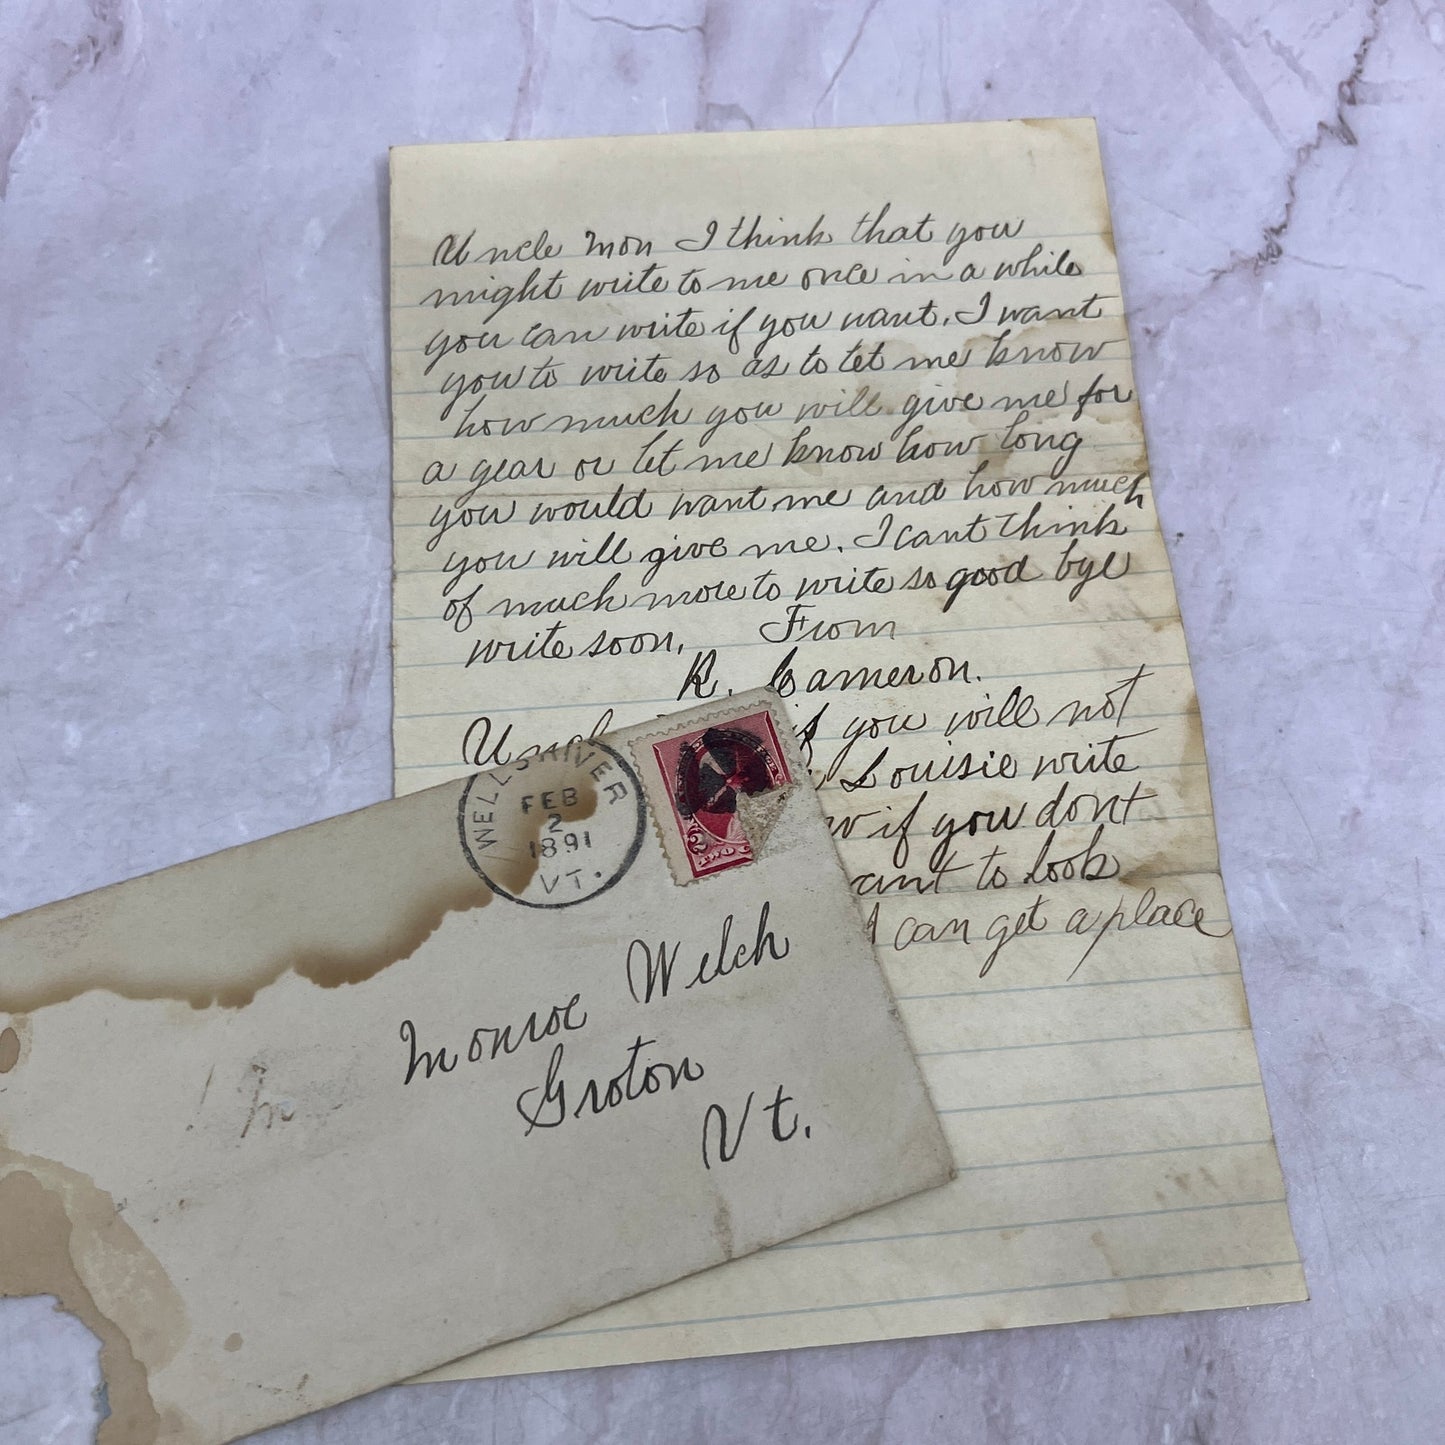 Uncle Mon I think that you
might write to me once in a while
you can write if you want. I want
you to write so as to let me know
how much you will give me for
a year or let me know how long
you would want me and how much
you will give me. I cant think
of much more to write so good bye
write soon. From
R. Cameron.
Uncle if you will not
Louisie write
if you dont
to look
I can get a place
WELLS RIVER
FEB
2
1891
VT.
2
TWO
Monroe Welch
Groton
Vt.